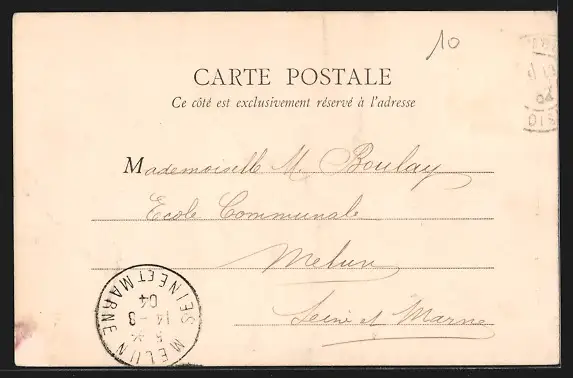 10
CARTE POSTALE
Ce côté est exclusivement réservé à l'adresse
Mademoiselle M. Boulay
Ecole Communale
Melun
Seine et Marne
MELUN
SEINE ET MARNE
14 - 8
04
04
OIS